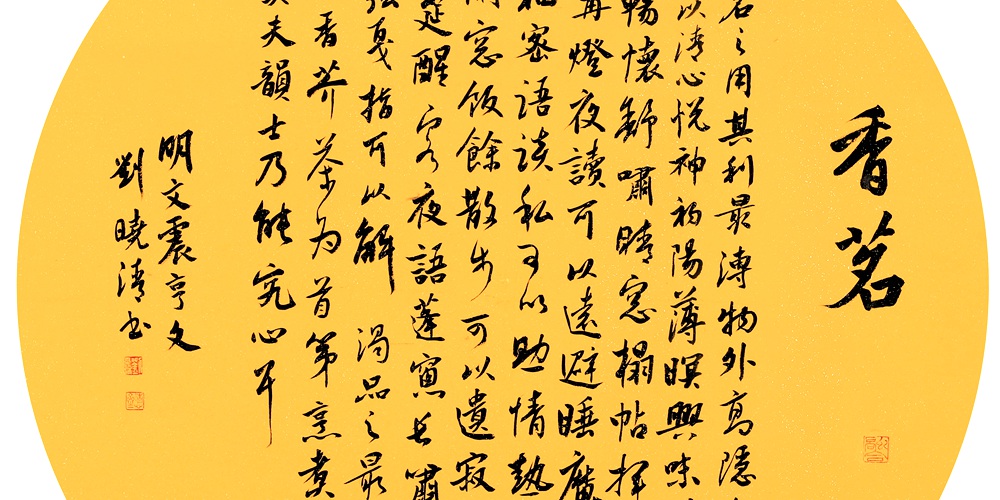 香茗
茗之用其利最溥物外高隱
以清心悦神初陽薄暝興味
暢懷舒嘯晴窓榻帖揮
燈夜讀可以遠避睡魔
密語談私可以助情熱
窓飯餘散步可以遺寂
筵醒客夜語蓬窓長嘯
弦戛指可以解渴品之最
香芥茶为首第烹煮
夫韻士乃能究心耳
明文震亨文
劉曉清书